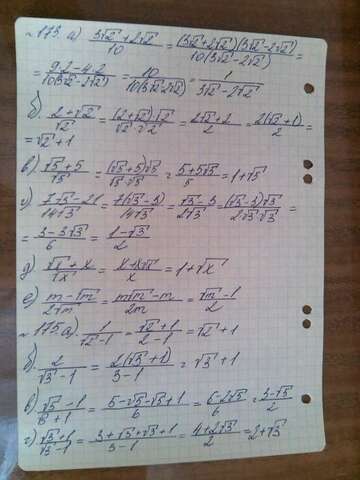 №173. а) (3√2 + 2√2)/10 = (3√2+2√2)(3√2-2√2)/10(3√2-2√2) =
= (9·2-4·2)/10(3√2-2√2) = 10/10(3√2-2√2) = 1/(3√2-2√2)
б) (2+√2)/√2 = (2+√2)√2/(√2·√2) = (2√2+2)/2 = 2(√2+1)/2 =
= √2+1
в) (√5+5)/√5 = (√5+5)√5/(√5·√5) = (5+5√5)/5 = 1+√5
г) (7√3-21)/14√3 = 7(√3-3)/14√3 = (√3-3)/2√3 = (√3-3)√3/(2√3·√3) =
= (3-3√3)/6 = (1-√3)/2
д) (√x+x)/√x = (x+x√x)/x = 1+√x
е) (m-√m)/2√m = (m√m-m)/2m = (√m-1)/2
№175. а) 1/(√2-1) = (√2+1)/(2-1) = √2+1
б) 2/(√3-1) = 2(√3+1)/(3-1) = √3+1
в) (√5-1)/(√5+1) = (5-√5-√5+1)/6 = (6-2√5)/6 = (3-√5)/2
г) (√3+1)/(√3-1) = (3+√3+√3+1)/(3-1) = (4+2√3)/2 = 2+√3